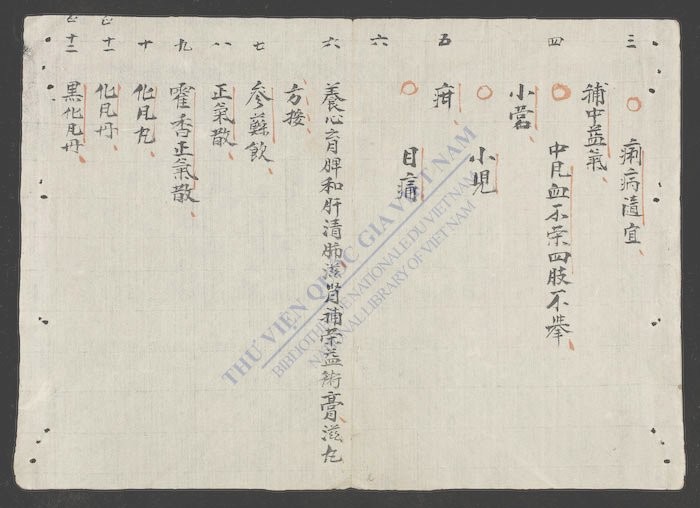 三 痢病隨宜
補中益氣
四 中凡血不榮四肢不舉
小営
小児
五 疳
目痛
六
六 養心育脾和肝清肺滋腎補榮益衛膏滋丸
方按
七 參蘇飲
八 正氣散
九 霍香正氣散
十 化凡丸
十一 化凡丹
十二 黑化凡丹
THƯ VIỆN QUỐC GIA VIỆT NAM
BIBLIOTHÈQUE NATIONALE DU VIETNAM
NATIONAL LIBRARY OF VIETNAM